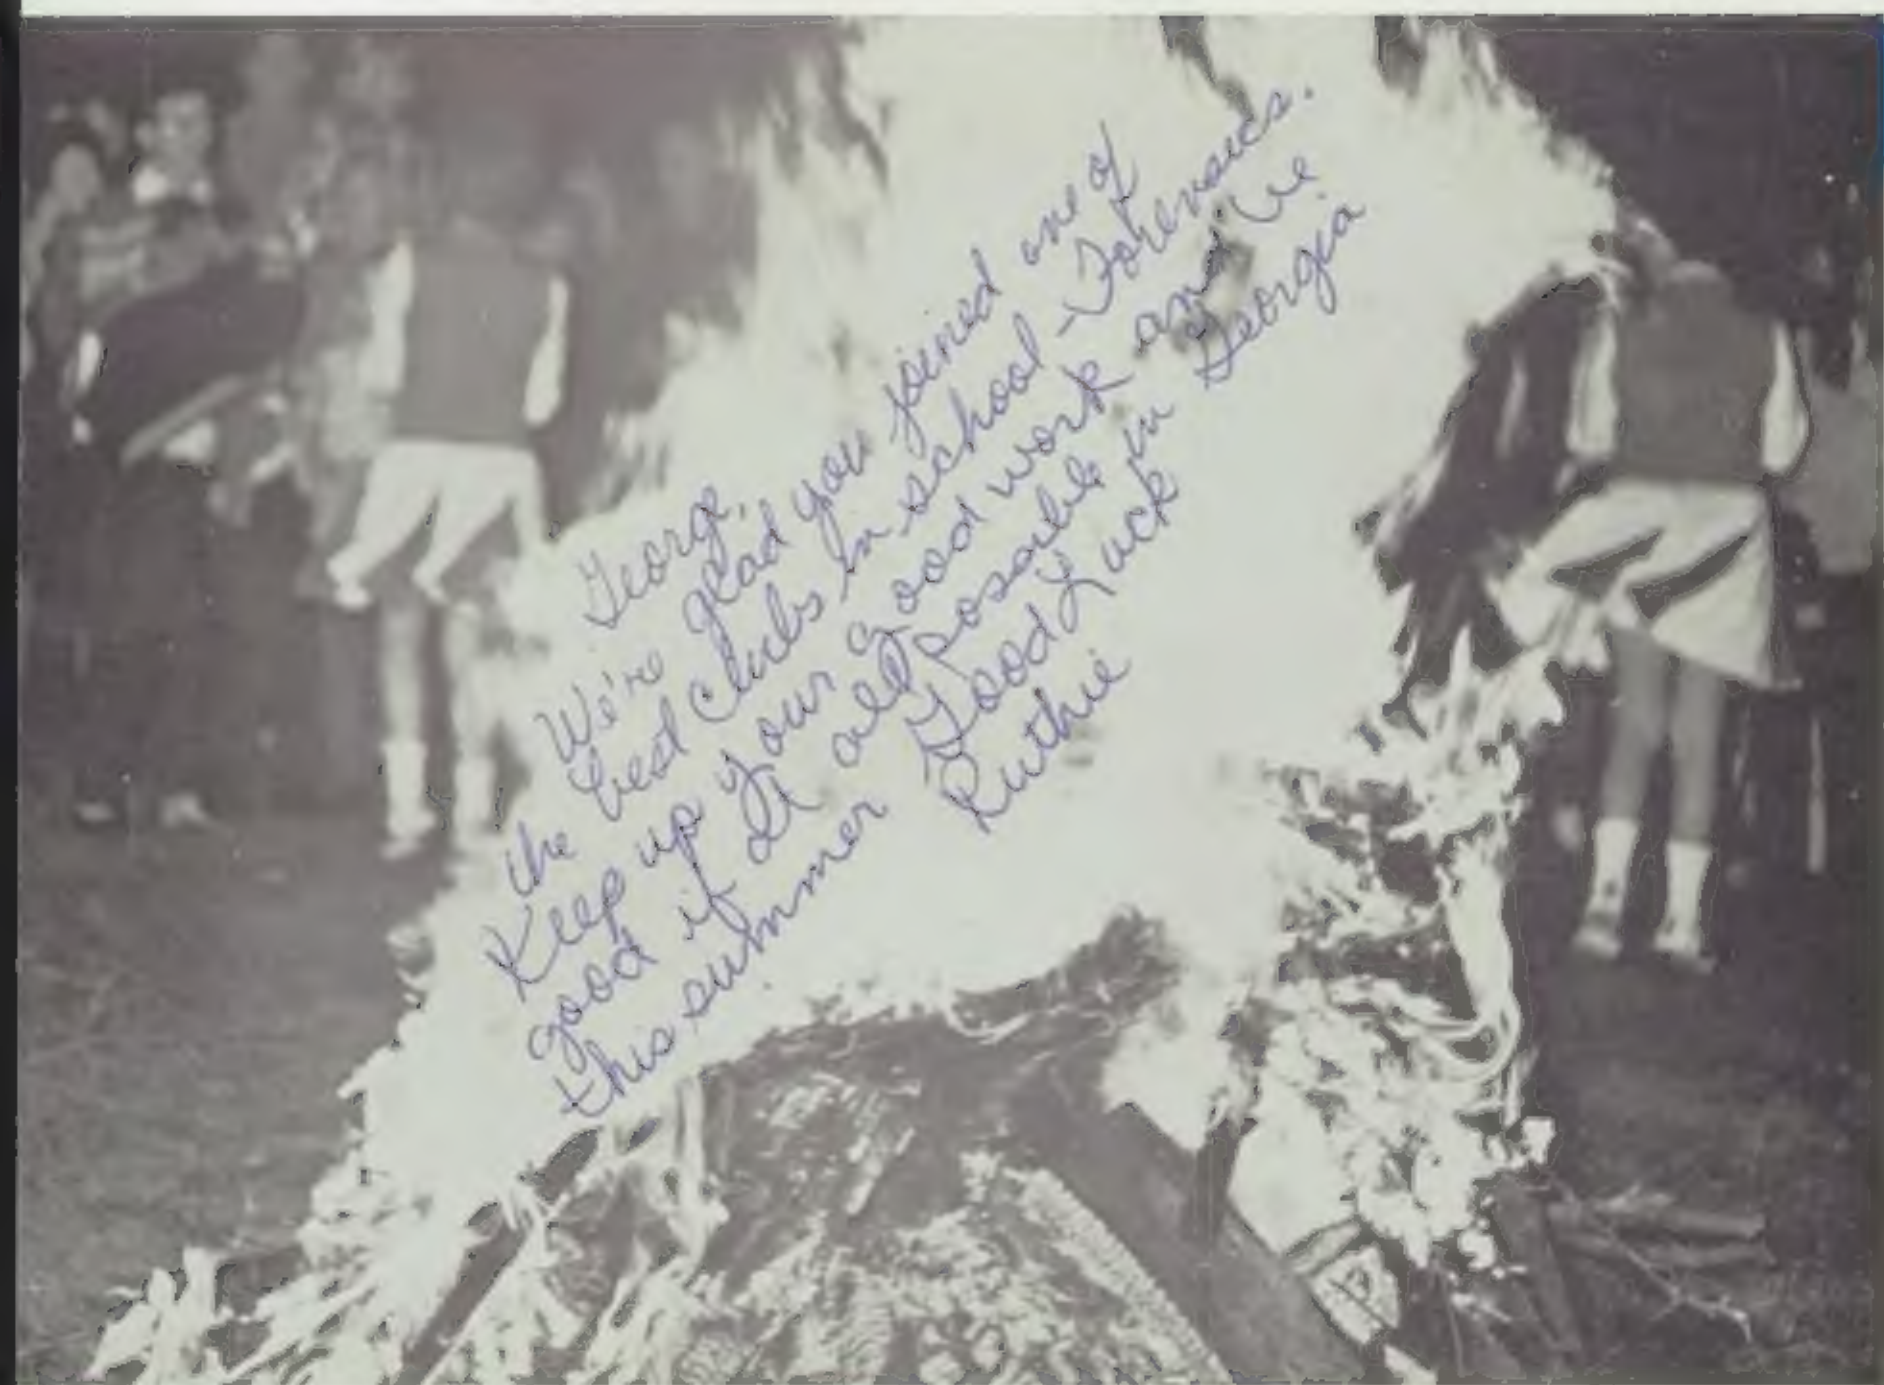 George,
We're glad you joined one of
the best clubs in school - Forensics.
Keep up your good work and be
good if at all possible in Georgia
this summer Good Luck
Ruthie